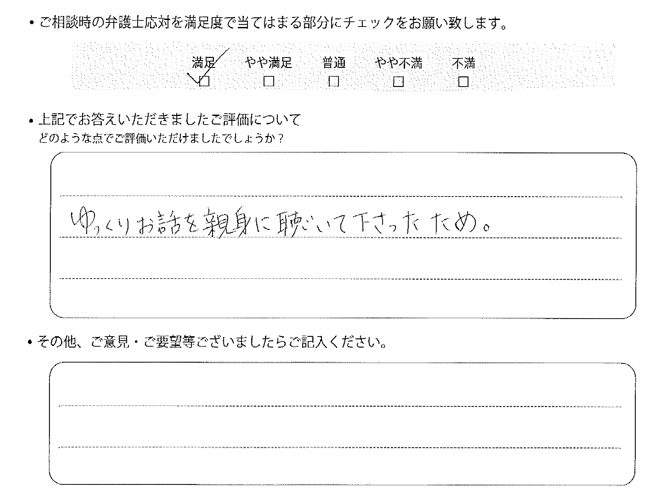 ・ご相談時の弁護士応対を満足度で当てはまる部分にチェックをお願い致します。
満足 やや満足 普通 やや不満 不満
・上記でお答えいただきましたご評価について
どのような点でご評価いただけましたでしょうか？
ゆっくりお話を親身に聴いて下さったため。
・その他、ご意見・ご要望等ございましたらご記入ください。